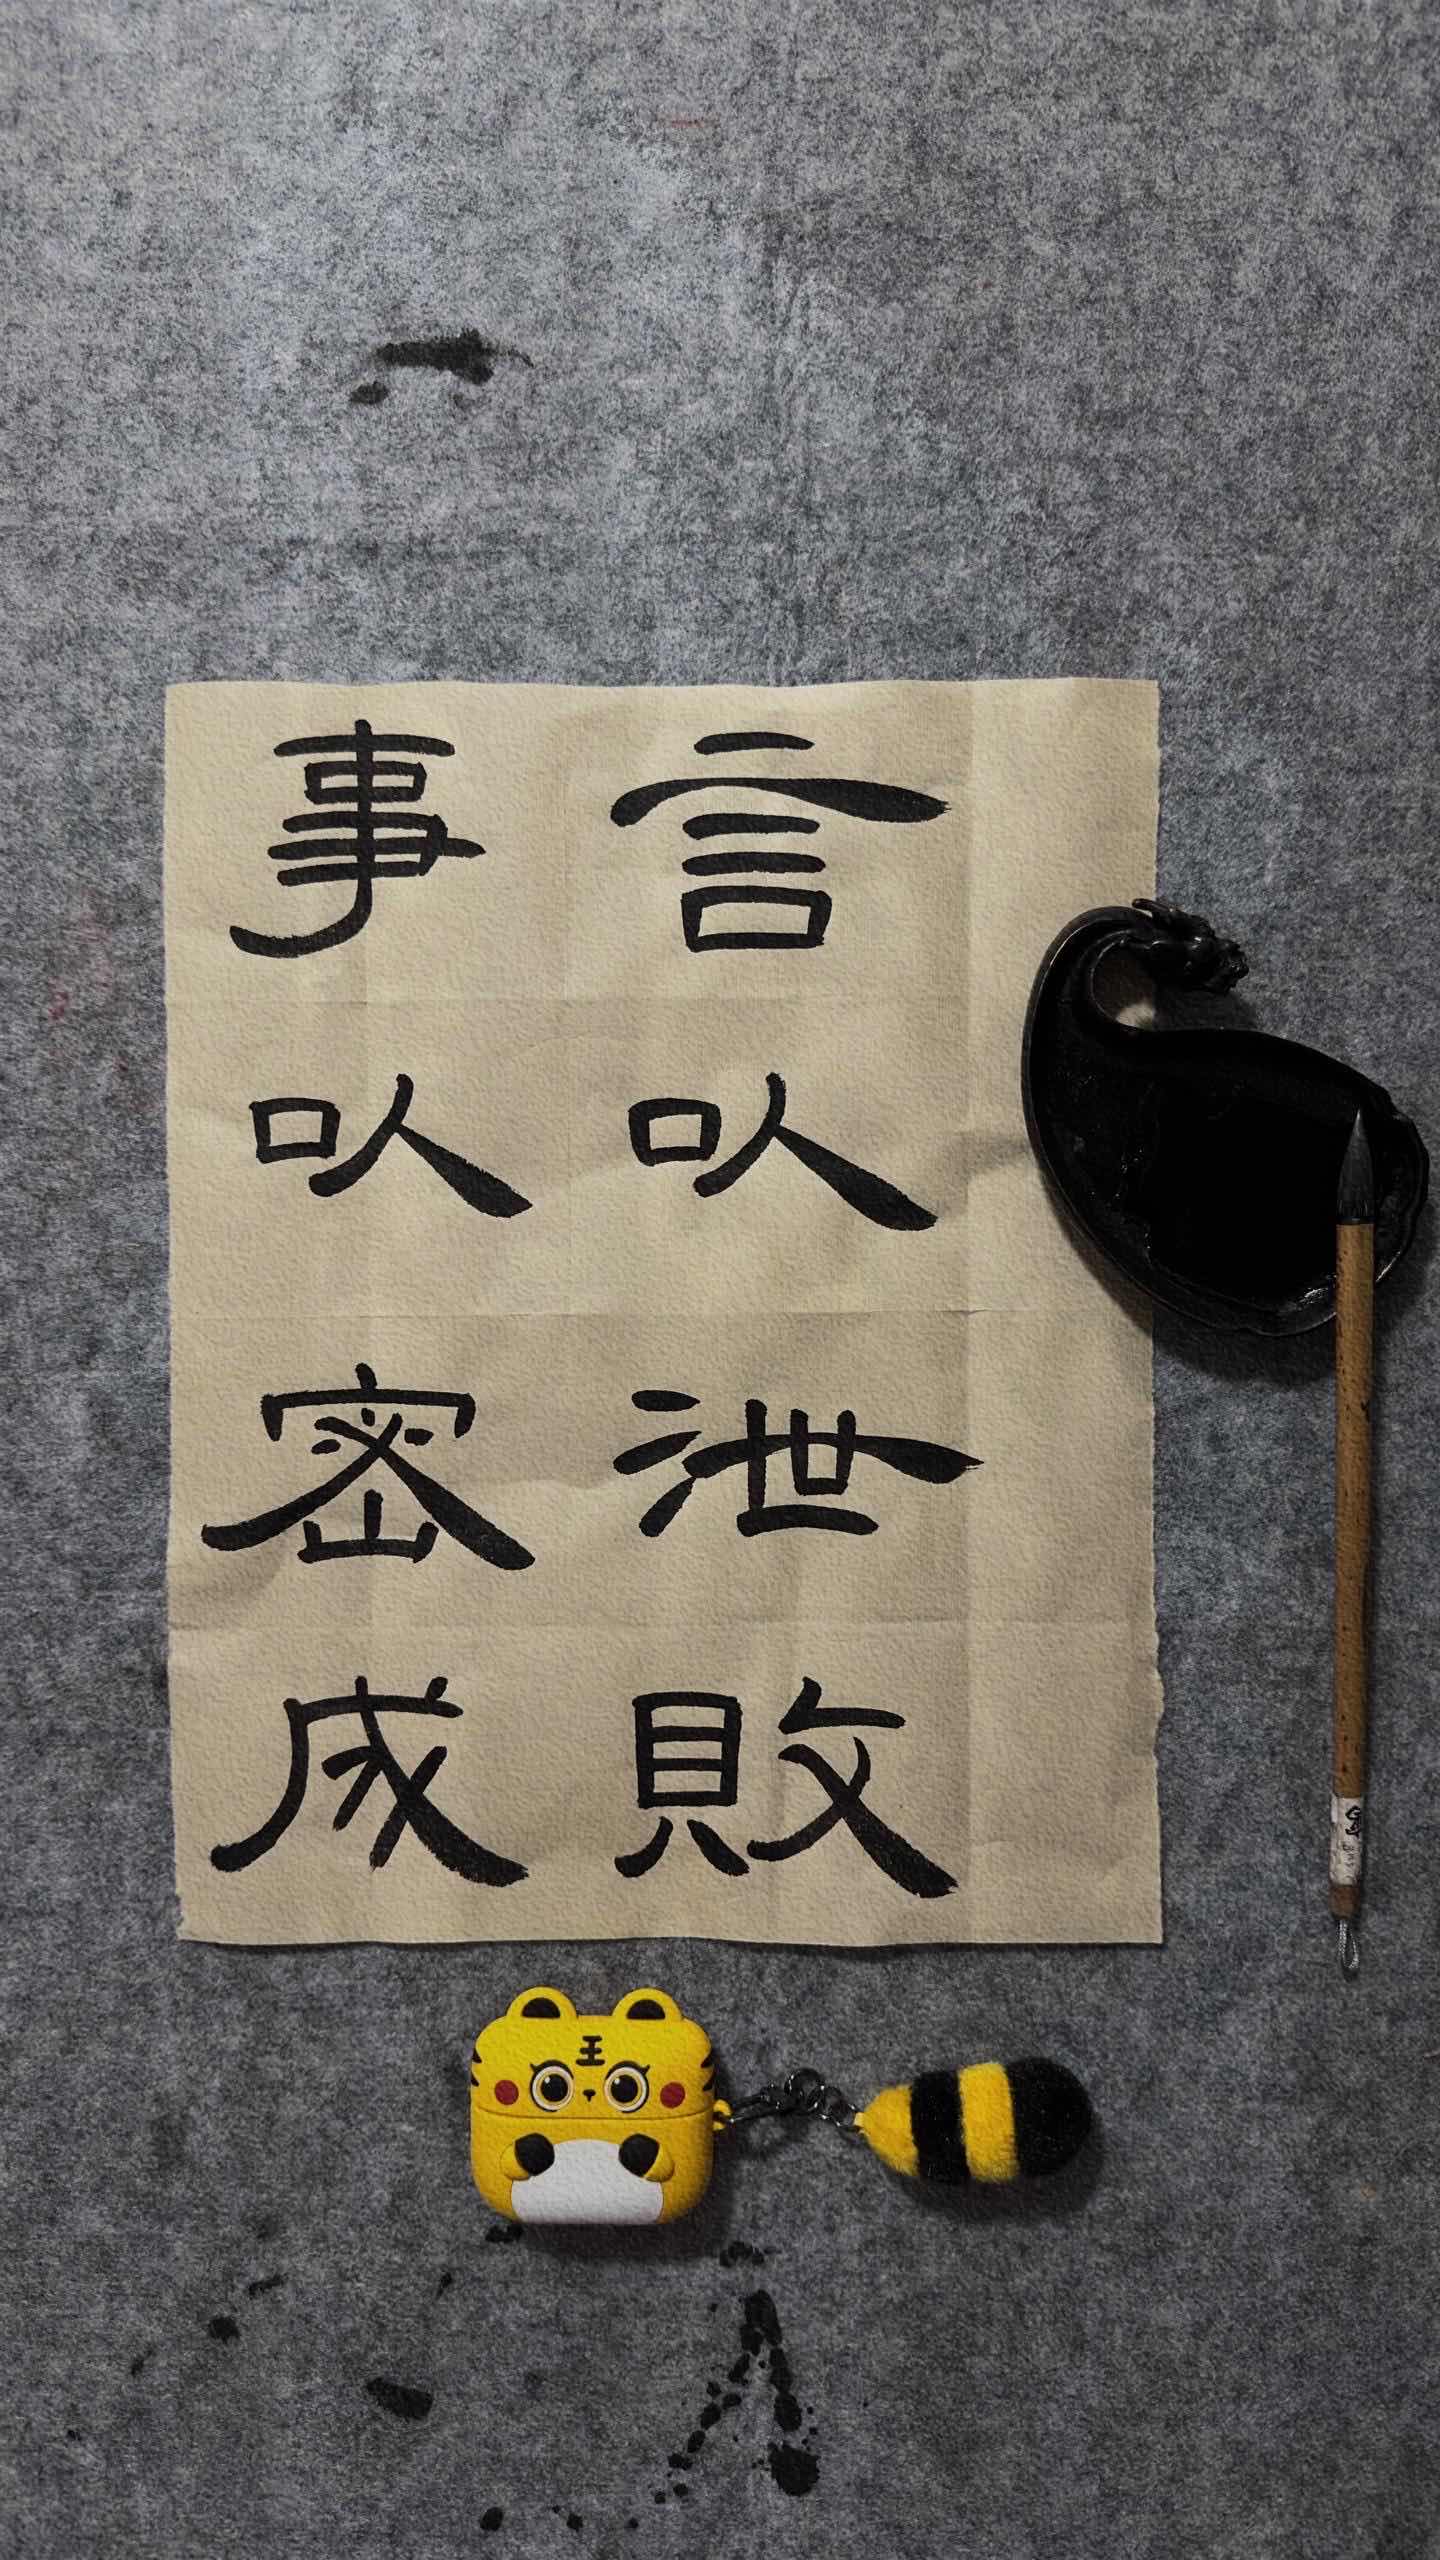 事以密成
言以泄敗
王